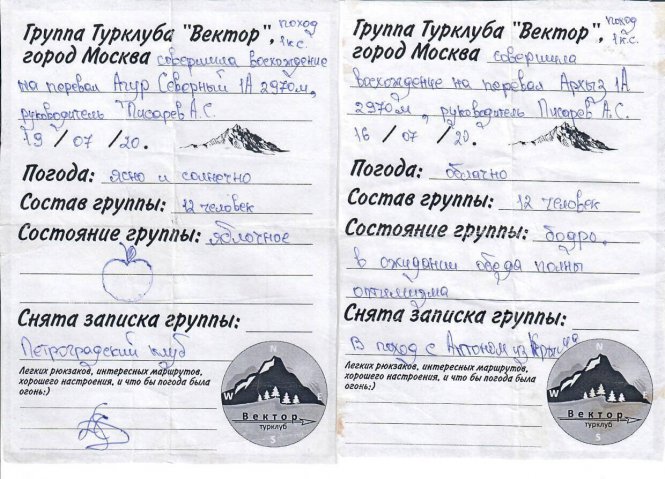 Группа Турклуба "Вектор", поход
город Москва совершила восхождение 1 к.с.
на перевал Агур Северный 1А 2970м,
руководитель Писарев А.С.
19 / 07 / 20.
Погода: ясно и солнечно
Состав группы: 12 человек
Состояние группы: яблочное
Снята записка группы:
Петроградский клуб
Легких рюкзаков, интересных маршрутов,
хорошего настроения, и что бы погода была
огонь:)
N
W E
Вектор
турклуб
S
Группа Турклуба "Вектор", поход
город Москва совершила 1 к.с.
восхождение на перевал Архыз 1А
2970м, руководитель Писарев А.С.
16 / 07 / 20.
Погода: облачно
Состав группы: 12 человек
Состояние группы: бодро,
в ожидании обеда полны
оптимизма
Снята записка группы:
В поход с Антоном из Крыма
Легких рюкзаков, интересных маршрутов,
хорошего настроения, и что бы погода была
огонь:)
N
W E
Вектор
турклуб
S